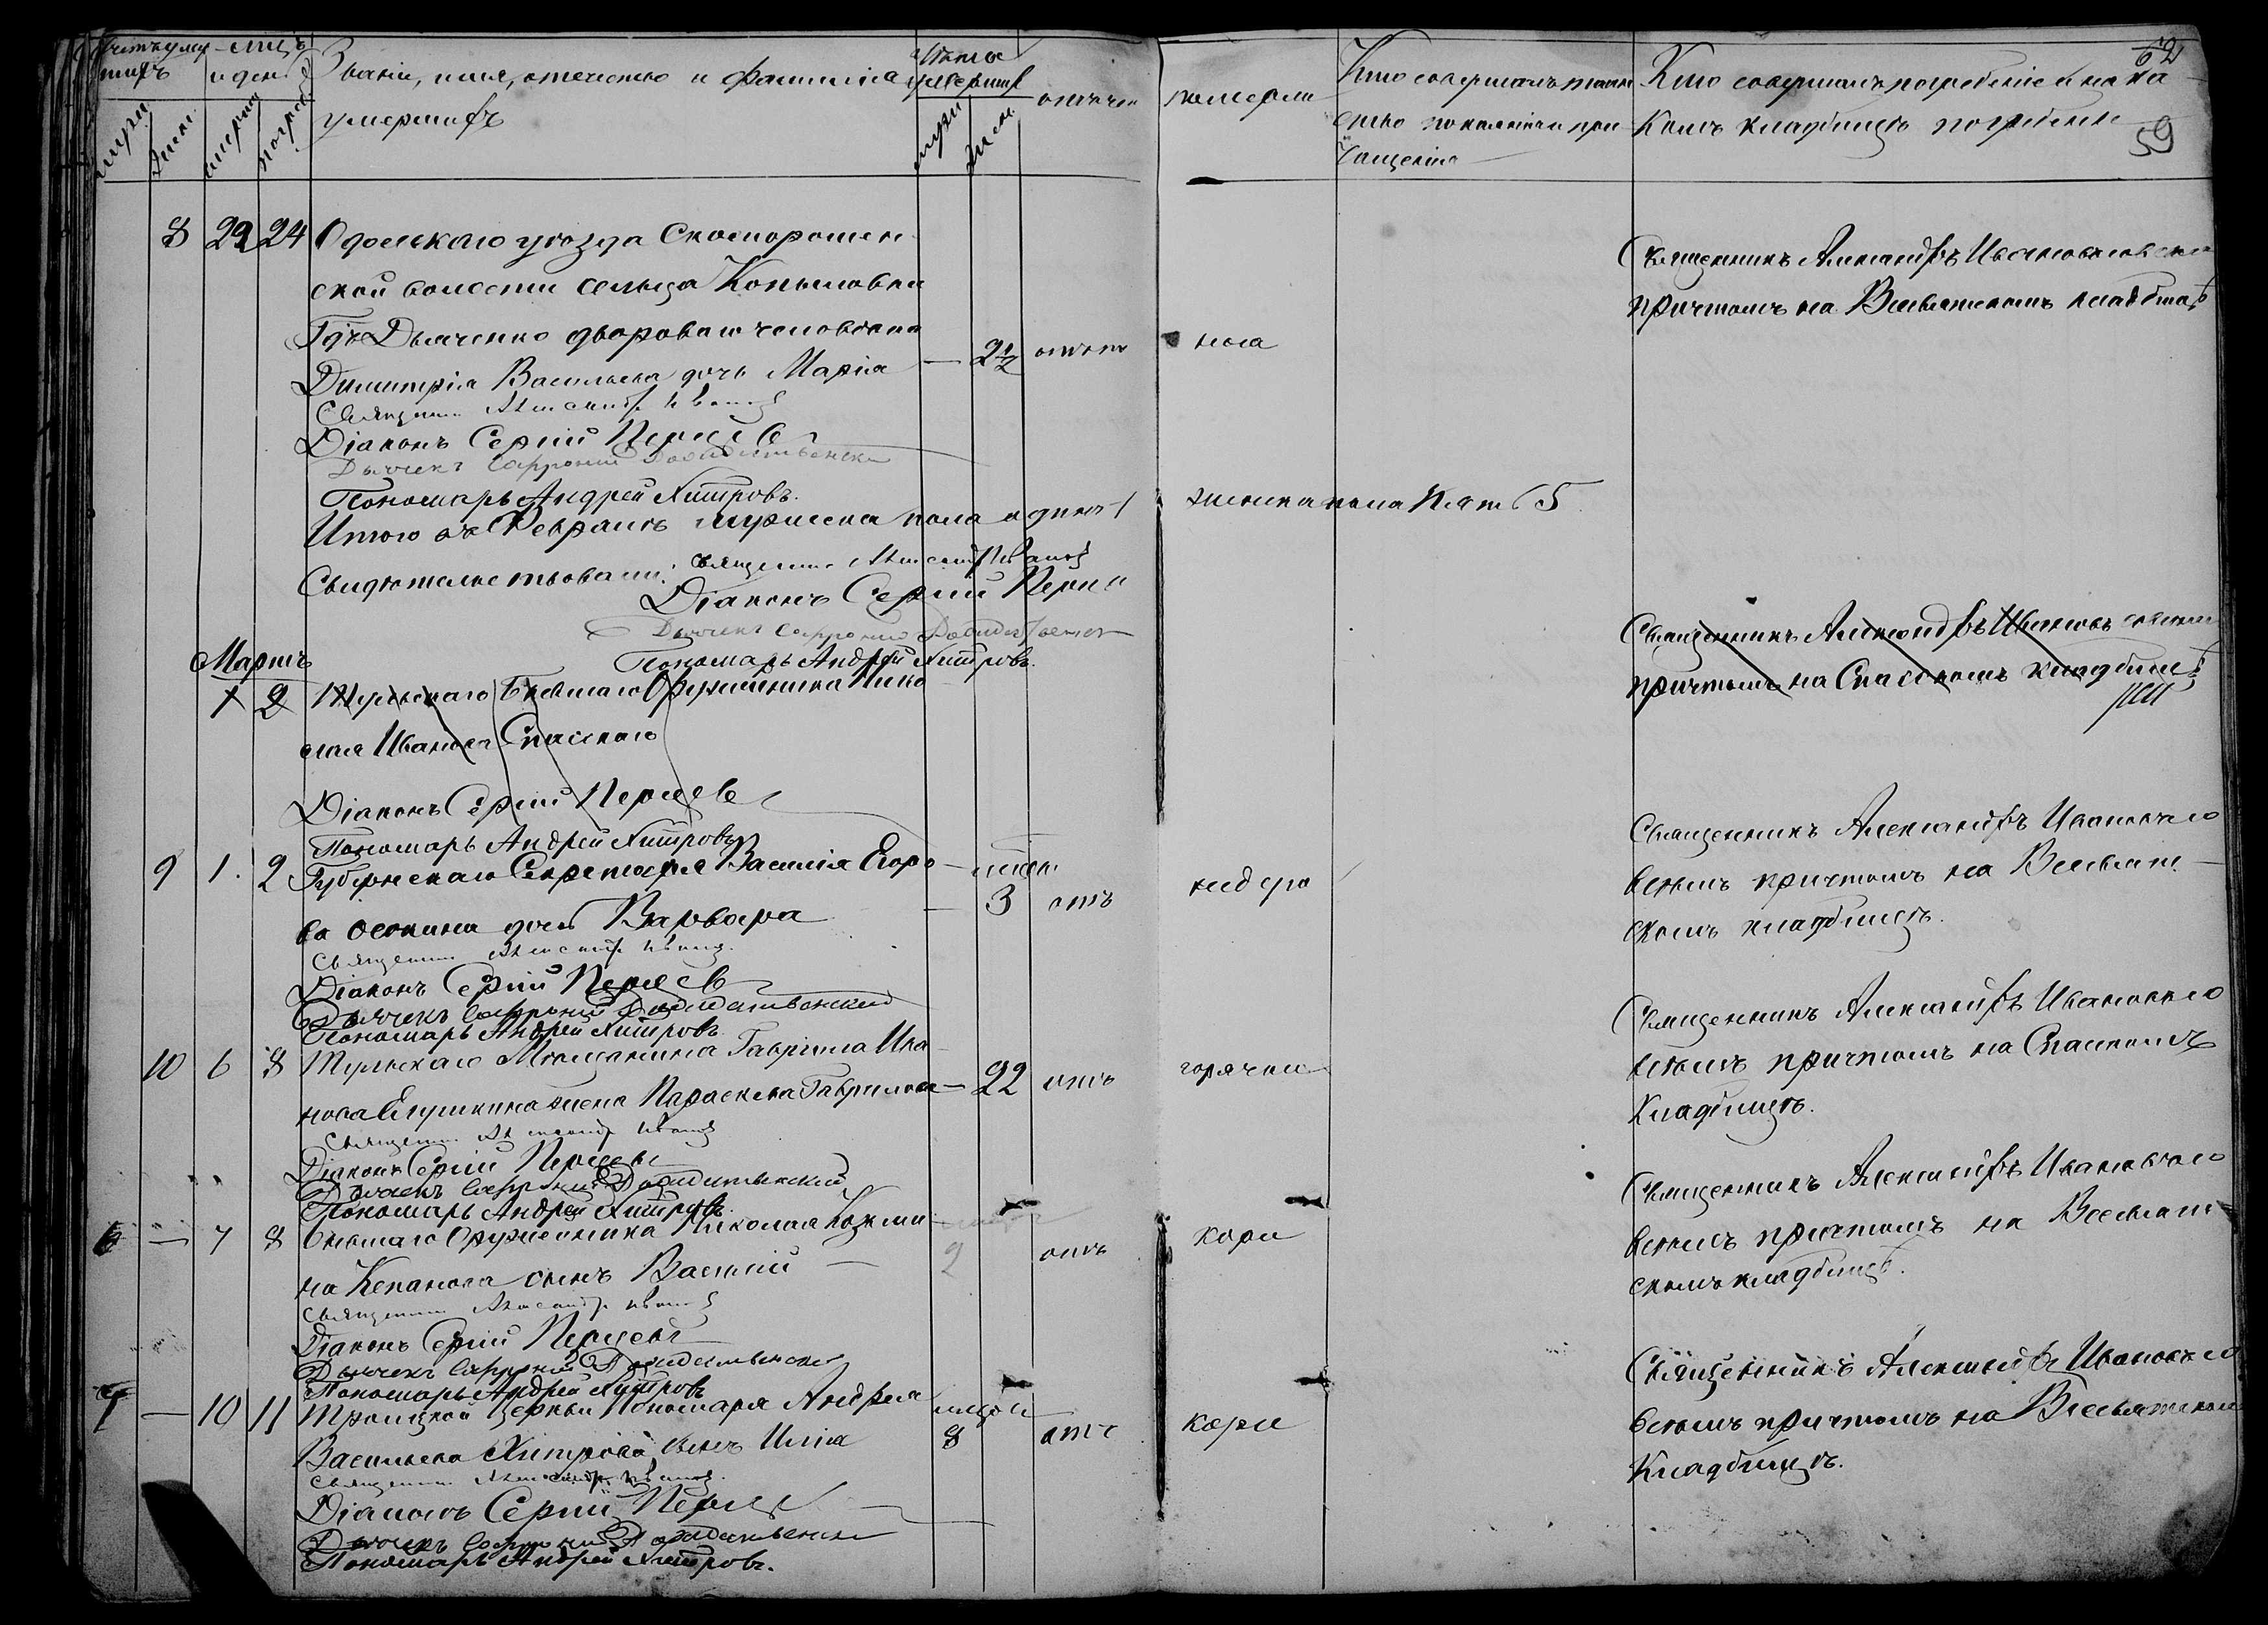 62
59
Счетъ умер
шихъ
Мѣсяцъ
и день
муж.
женс.
смерти
погреб.
Званіе, имя, отечество и фамилія
умершихъ
Лѣта
умершихъ
муж
жен.
отъ чего
померли
Кто совершалъ таин
ство покаянія и при
чащенія
Кто совершалъ погребеніе и на ка
комъ кладбищѣ погребены
8 22 24 Одоевскаго уѣзда Скоморошен
ской волости сельца Копыловки
Гдъ Дьяченко двороваго человѣка
Димитрія Васильева дочь Марія — 2½ отъ поноса
Священникъ Александръ Ивановъ съ своимъ
причтомъ на Всесвятскомъ кладбищѣ
Священникъ Александръ Ивановъ
Діаконъ Сергій Перцевъ
Дьячекъ Софроній
Пономарь Андрей Хитровъ.
Итого въ Февралѣ мужеска пола одинъ 1 женска пола Пять 5.
Свидѣтельствовали: Священникъ Александръ Ивановъ
Діаконъ Сергій Перцевъ
Дьячекъ Софроній
Пономарь Андрей Хитровъ.
Мартъ
1 2 Тульскаго бывшаго Оружейника Нико
лая Иванова Спасскаго
Священникъ Александръ Ивановъ съ своимъ
причтомъ на Спасскомъ кладбищѣ
Діаконъ Сергій Перцевъ
Пономарь Андрей Хитровъ
9 1. 2 Губернскаго Секретаря Василія Егоро
ва дочь Варвара — 3 отъ
Священникъ Александръ Ивановъ съ
всѣмъ причтомъ на Всесвят
скомъ кладбищѣ.
Священникъ Александръ Ивановъ.
Діаконъ Сергій Перцевъ
Дьячекъ Софроній
Пономарь Андрей Хитровъ.
10 6 8 Тульскаго Мѣщанина Гавріила Ива
нова жена Параскева Гаврилова — 22 отъ горячки
Священникъ Александръ Ивановъ съ
всѣмъ причтомъ на Спасскомъ
Кладбищѣ.
Священникъ Александръ Ивановъ
Діаконъ Сергій Перцевъ
Дьячекъ Софроній
Пономарь Андрей Хитровъ.
6 — 7 8 бывшаго Оружейника Николая Козми
на сынъ Василій — 2 отъ кори
Священникъ Александръ Ивановъ съ
всѣмъ причтомъ на Всесвят
скомъ кладбищѣ.
Священникъ Александръ Ивановъ
Діаконъ Сергій Перцевъ
Дьячекъ Софроній
Пономарь Андрей Хитровъ
7 — 10 11 Троицкой церкви Пономаря Андрея
Васильева Хитрова сынъ Илія
8 отъ кори
Священникъ Александръ Ивановъ съ
всѣмъ причтомъ на Всесвятскомъ
Кладбищѣ.
Священникъ Александръ Ивановъ.
Діаконъ Сергій Перцевъ
Дьячекъ Софроній
Пономарь Андрей Хитровъ.